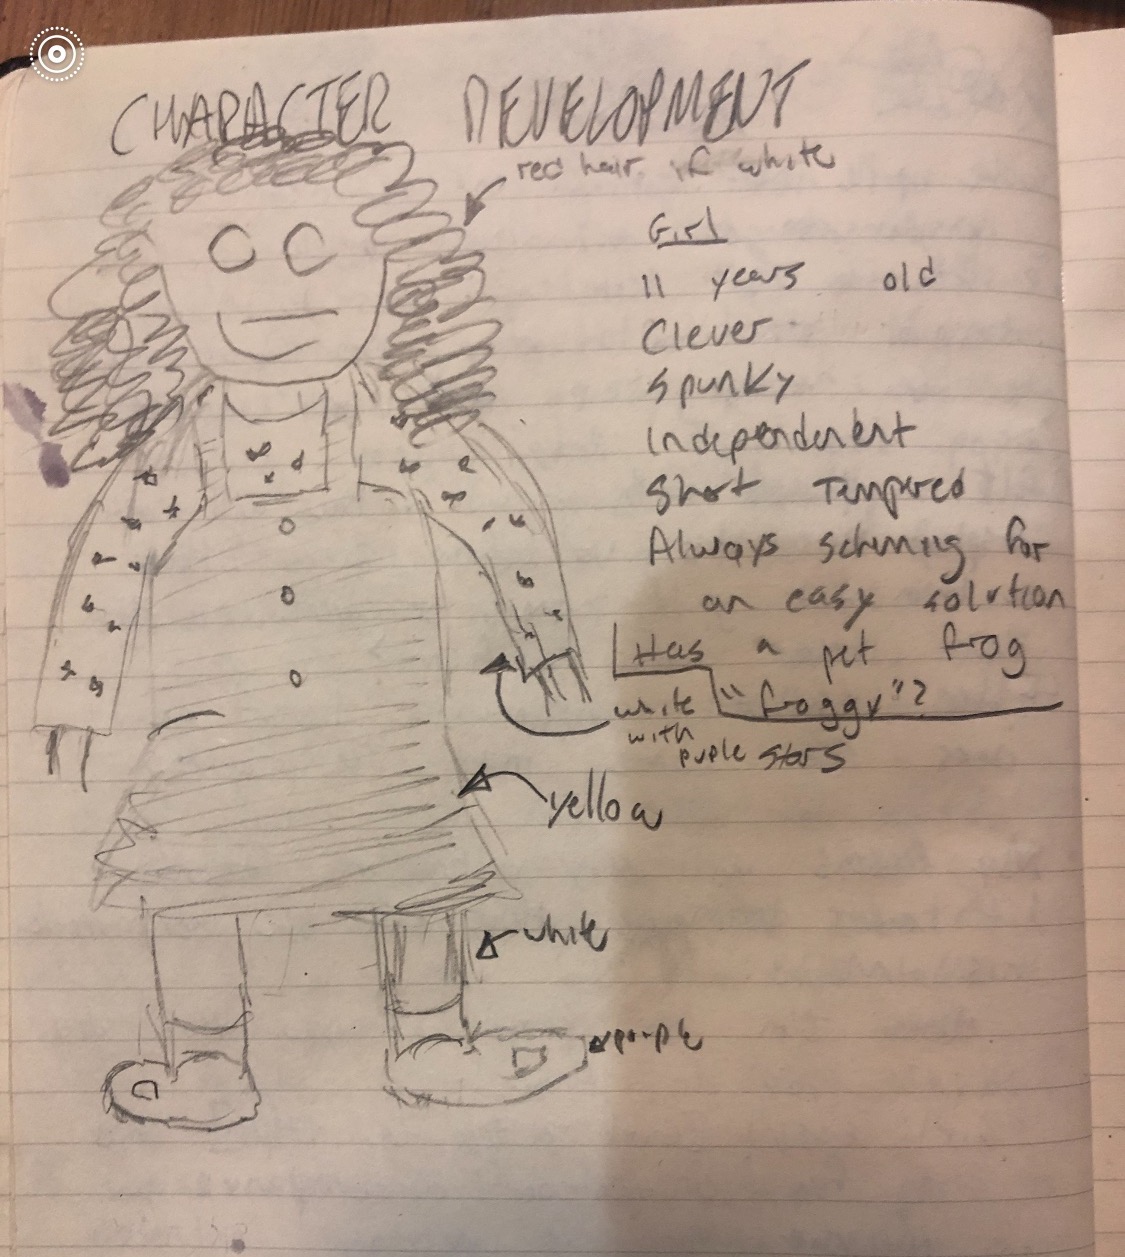 CHARACTER DEVELOPMENT
red hair if white
Girl
11 years old
Clever
Spunky
Independent
Short Tempered
Always scheming for
an easy solution
Has a pet frog
"froggy"?
white
with
purple stars
yellow
white
purple